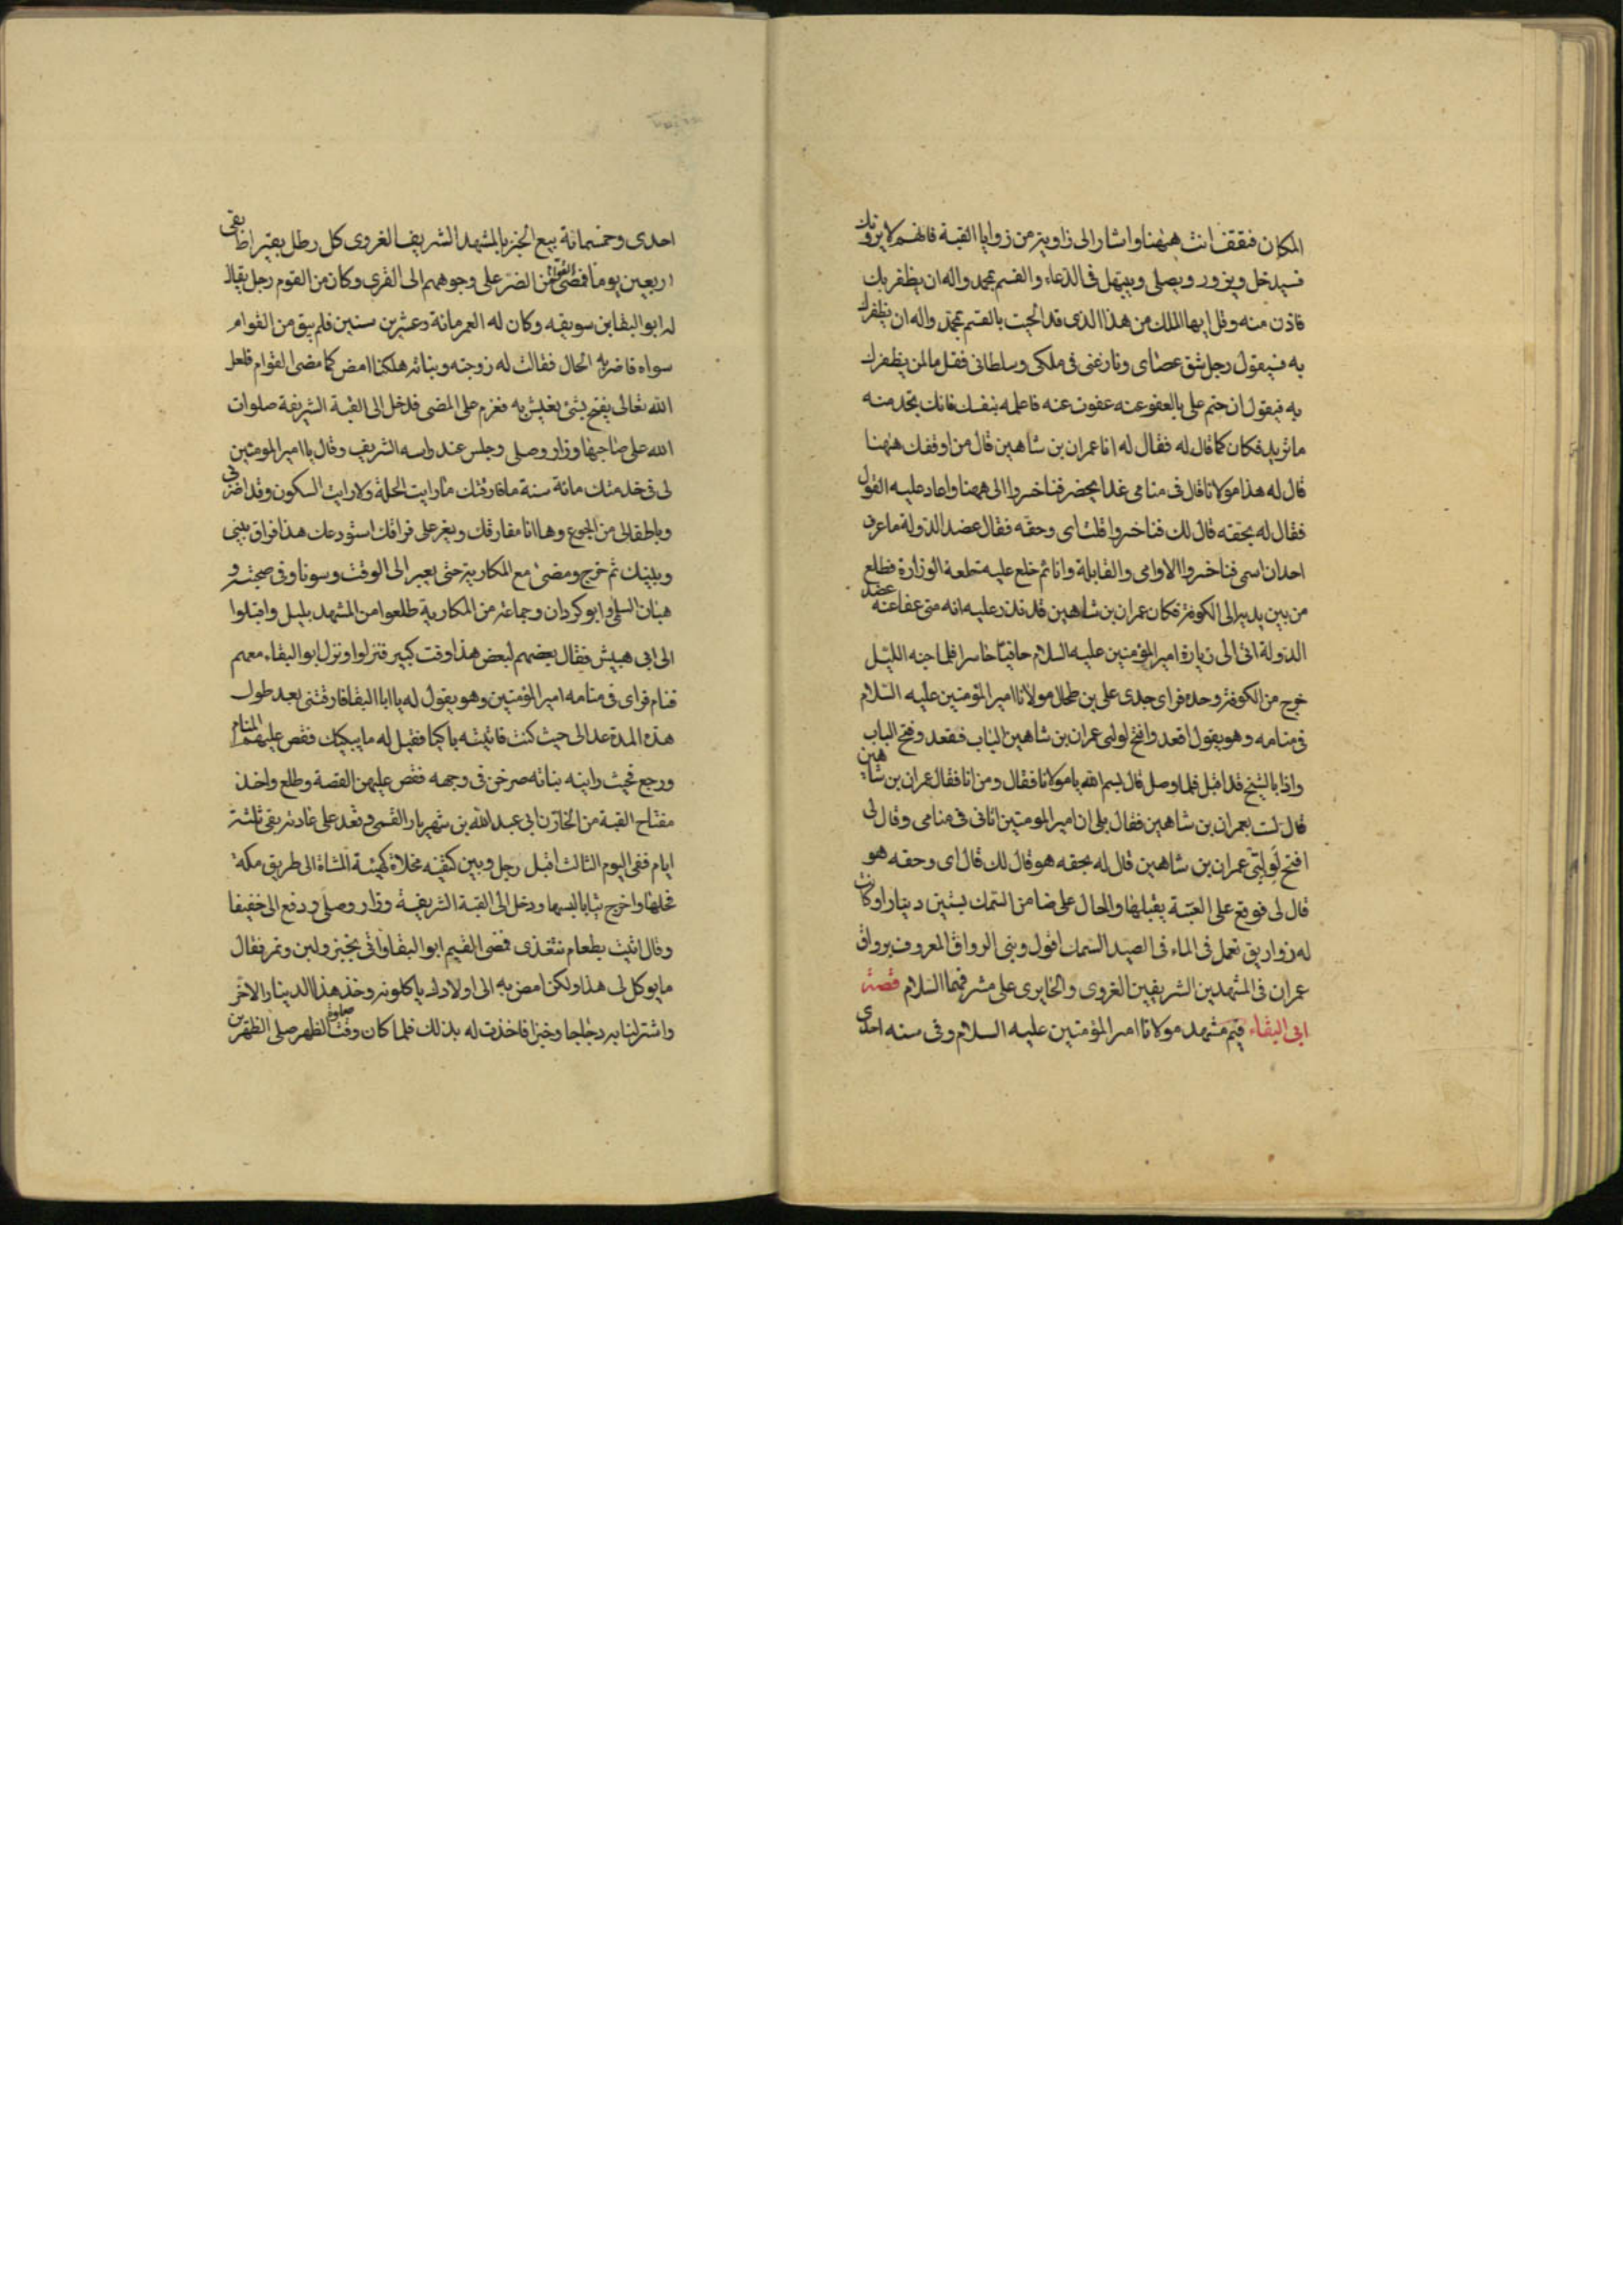 المكان فتقف انت ههنا واشار الى زاوية من زوايا القبة فانهم لا يرونك
فسيدخل ويزور ويصلى ويبتهل فى الدعاء والقسم بمحمد واله ان يظفر بك
فادن منه وقل ايها الملك من هذا الذى قد الححت بالقسم بمحمد واله ان يظفرك
به فسيقول رجل شق عصاى ونازعنى فى ملكى وسلطانى فقل ما لمن يظفرك
به فيقول ان حتم على بالعفو عنه عفوت عنه فاعلمه بنفسك فانك تجد منه
ما تريد فكان كما قال له فقال له انا عمران بن شاهين قال من اوقفك ههنا
قال له هذا مولانا قال فى منامى غدا يحضر فناخسروا الى ههنا واعاد عليه القول
فقال له بحقه قال لك فناخسروا قلت اى وحقه فقال عضد الدولة ما عرف
احد ان اسمى فناخسروا الا امى والقابلة وانا ثم خلع عليه خلعة الوزارة فطلع
من بين يديه الى الكوفة فكان عمران بن شاهين قد نذر عليه انه متى عفا عنه عضد
الدولة اتى الى زيارة امير المؤمنين عليه السلام حافيا حاسرا فلما جنه الليل
خرج من الكوفة وحده فراى جدى على بن طحال مولانا امير المؤمنين عليه السلام
فى منامه وهو يقول اقعد وافتح لوليى عمران بن شاهين الباب فقعد وفتح الباب
واذا بالشيخ قد اقبل فلما وصل قال بسم الله يا مولانا فقال ومن انا فقال عمران بن شاهين
قال لست بعمران بن شاهين فقال بلى ان امير المومنين اتانى فى منامى وقال لى
افتح لوليى عمران بن شاهين قال له بحقه هو قال لك قال اى وحقه هو
قال لى فوقع على العتبة يقبلها واحال على ضامن السمك بستين دينارا وكانت
له زواريق تعمل فى الماء فى الصيد السمك اقول وبنى الرواق المعروف برواق
عمران فى المشهدين الشريفين الغروى والحايرى على مشرفهما السلام قصة
ابى البقاء قيم مشهد مولانا امير المؤمنين عليه السلام وفى سنه احدى
احدى وخمسمائة بيع الخبز بالمشهد الشريف الغروى كل رطل بقيراط بقى
اربعين يوما فمضى القوام من الضر على وجوههم الى القرى وكان من القوم رجل يقال
له ابو البقا بن سويقه وكان له العمر مائة وعشرين سنين فلم يبق من القوام
سواه فاضر به الحال فقالت له زوجته وبناته هلكنا امض كما مضى القوام فلعل
الله تعالى يفتح بشئ نعيش به فعزم على المضى فدخل الى القبة الشريفة صلوات
الله على صاحبها وزار وصلى وجلس عند راسه الشريف وقال يا امير المومنين
لى فى خدمتك مائة سنة ما فارقتك ما رايت الحلة ولا رايت السكون وقد اضر بى
وباطفالى من الجوع وها انا مفارقك ويعز على فراقك استودعك هذا فراق بينى
وبينك ثم خرج ومضى مع المكارية حتى يعبر الى الوقت وسورا وفى صحبته
السلمى وابو كردان وجماعة من المكارية طلعوا من المشهد بليل واقبلوا
الى ابى هبيش فقال بعضهم لبعض هذا وقت كبير فنزلوا ونزل ابو البقاء معهم
فنام فراى فى منامه امير المؤمنين وهو يقول له يا ابا البقا فارقتنى بعد طول
هذه المدة عد الى حيث كنت فانتبه باكيا فقيل له ما يبكيك فقص عليهم المنام
ورجع فحيث راينه بناته صرخن فى وجهه فقص عليهن القصة وطلع واخذ
مفتاح القبة من الخازن ابى عبد الله بن شهريار القمى وقعد على عادته بقى ثلثة
ايام ففى اليوم الثالث اقبل رجل وبين كتفيه مخلاة كهيئة المشاة الى طريق مكة
فحلها واخرج ثيابا لبسها ودخل الى القبة الشريفة وزار وصلى ودفع الى خفيفا
وقال ائت بطعام نتغذى فمضى القيم ابو البقا واتى بخبز ولبن وتمر فقال
ما يوكل لى هذا ولكن امض به الى اولادك ياكلونه وخذ هذا الدينار الاخر
واشتر لنا به دجاجا وخبزا فاخذت له بذلك فلما كان وقت صلوة الظهر صلى الظهرين